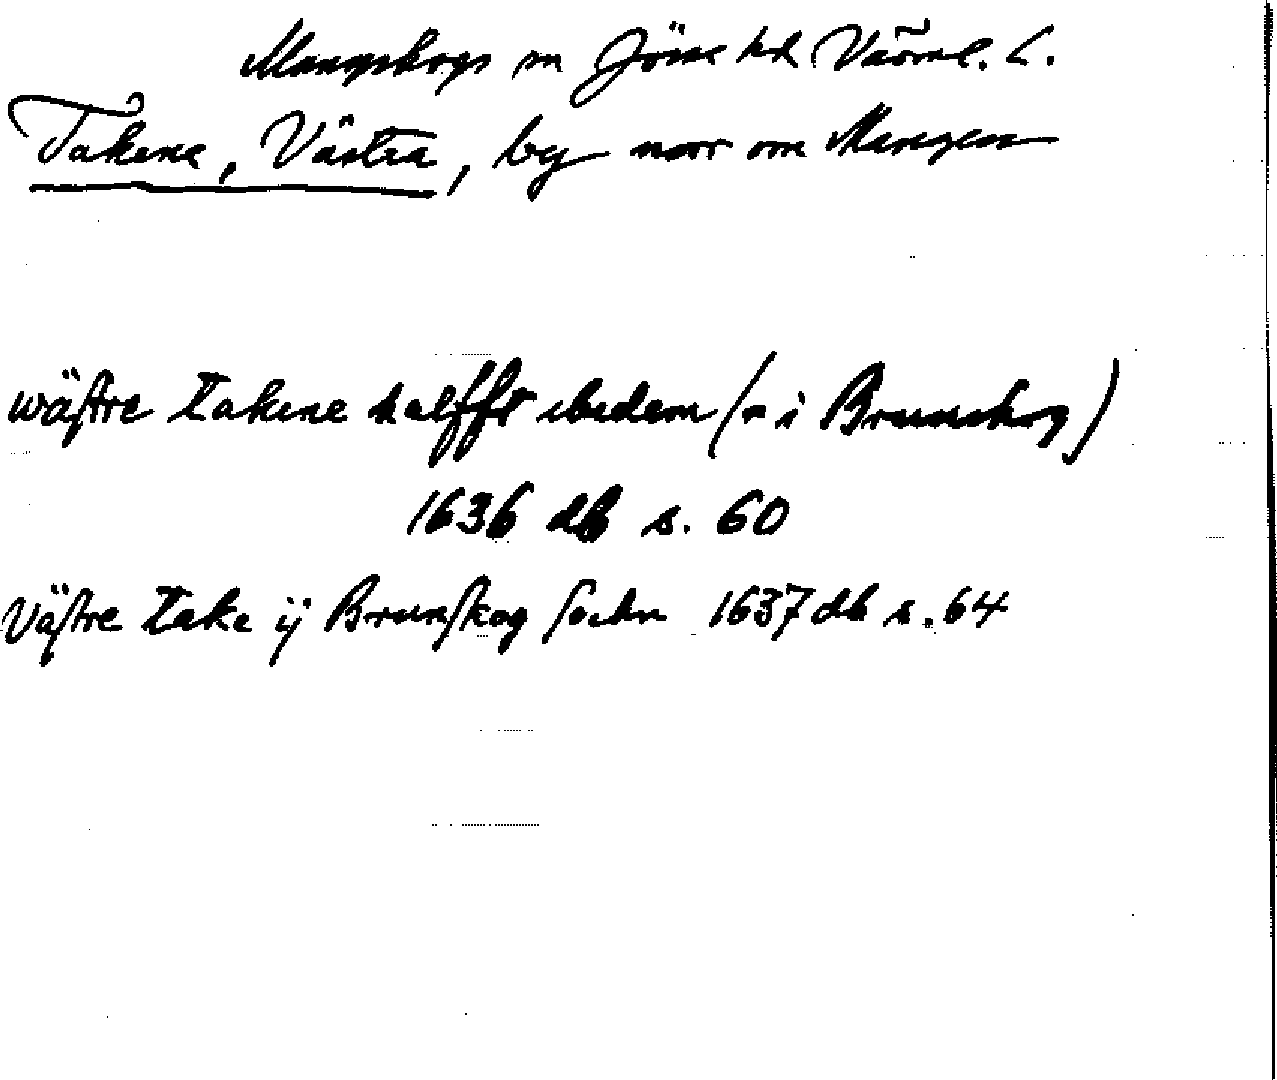 Mangskogs sn Jösse hd Värml. L.
Takene, Västra, by norr om Mangen
wästre takene halfft ibedem (ɔ: i Brunskog)
1636 db s. 60
Västre take ij Brunskog sochn 1637 db s. 64